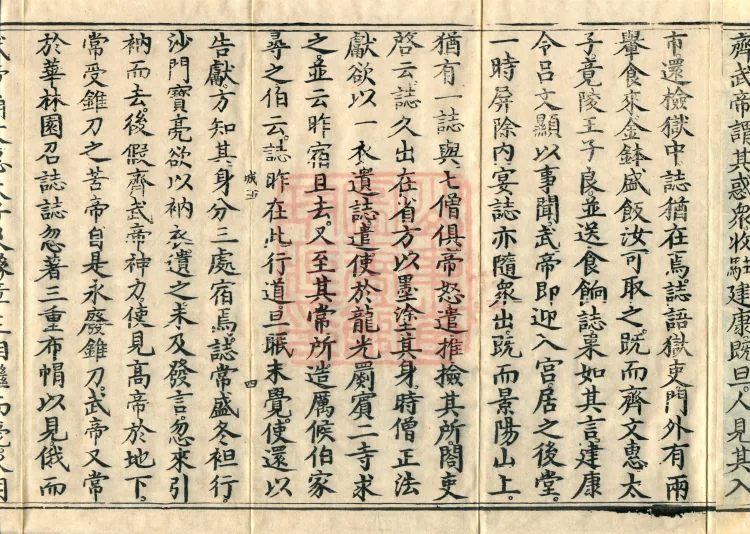 齊武帝謂其惑衆收駐建康旣旦人見其入
市還檢獄中誌猶在焉誌語獄吏門外有兩
轝食來金鉢盛飯汝可取之旣而齊文惠太
子竟陵王子良並送食餉誌果如其言建康
令呂文顯以事聞武帝卽迎入宮居之後堂
一時屏除內宴誌亦隨衆出旣而景陽山上
猶有一誌與七僧俱帝怒遣推撿其所閤吏
啓云誌久出在省方以墨塗其身時僧正法
獻欲以一衣遺誌遣使於龍光罽賓二寺求
之並云昨宿旦去又至其常所造厲候伯家
尋之伯云誌昨在此行道旦眠未覺使還以
告獻方知其身分三處宿焉誌常盛冬袒行
沙門寶亮欲以衲衣遺之未及發言忽來引
衲而去後假齊武帝神力使見高帝於地下
常受錐刀之苦帝自是永廢錐刀武帝又常
於華林園召誌誌忽著三重布帽以見俄而